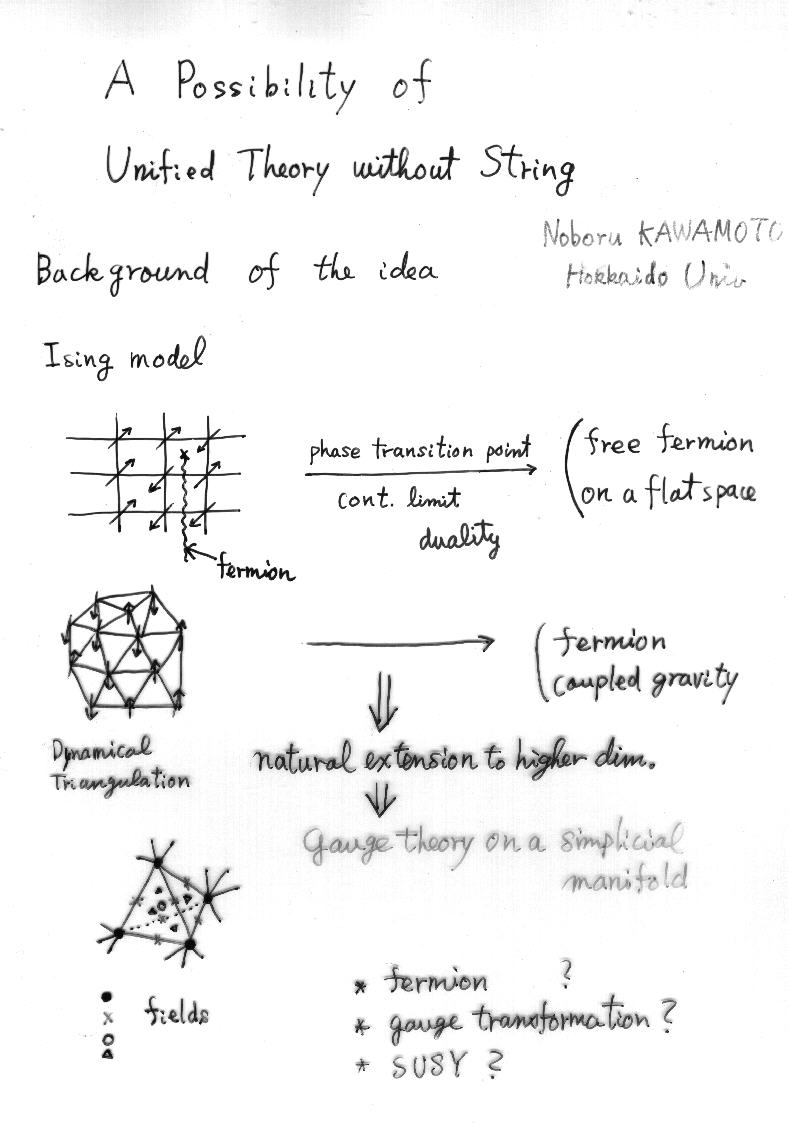 A Possibility of
Unified Theory without String
Noboru KAWAMOTO
Hokkaido Univ
Background of the idea
Ising model
phase transition point
cont. limit
duality
free fermion
on a flat space
fermion
fermion
coupled gravity
Dynamical
Triangulation
natural extension to higher dim.
Gauge theory on a simplicial
manifold
fields
* fermion ?
* gauge transformation ?
* SUSY ?